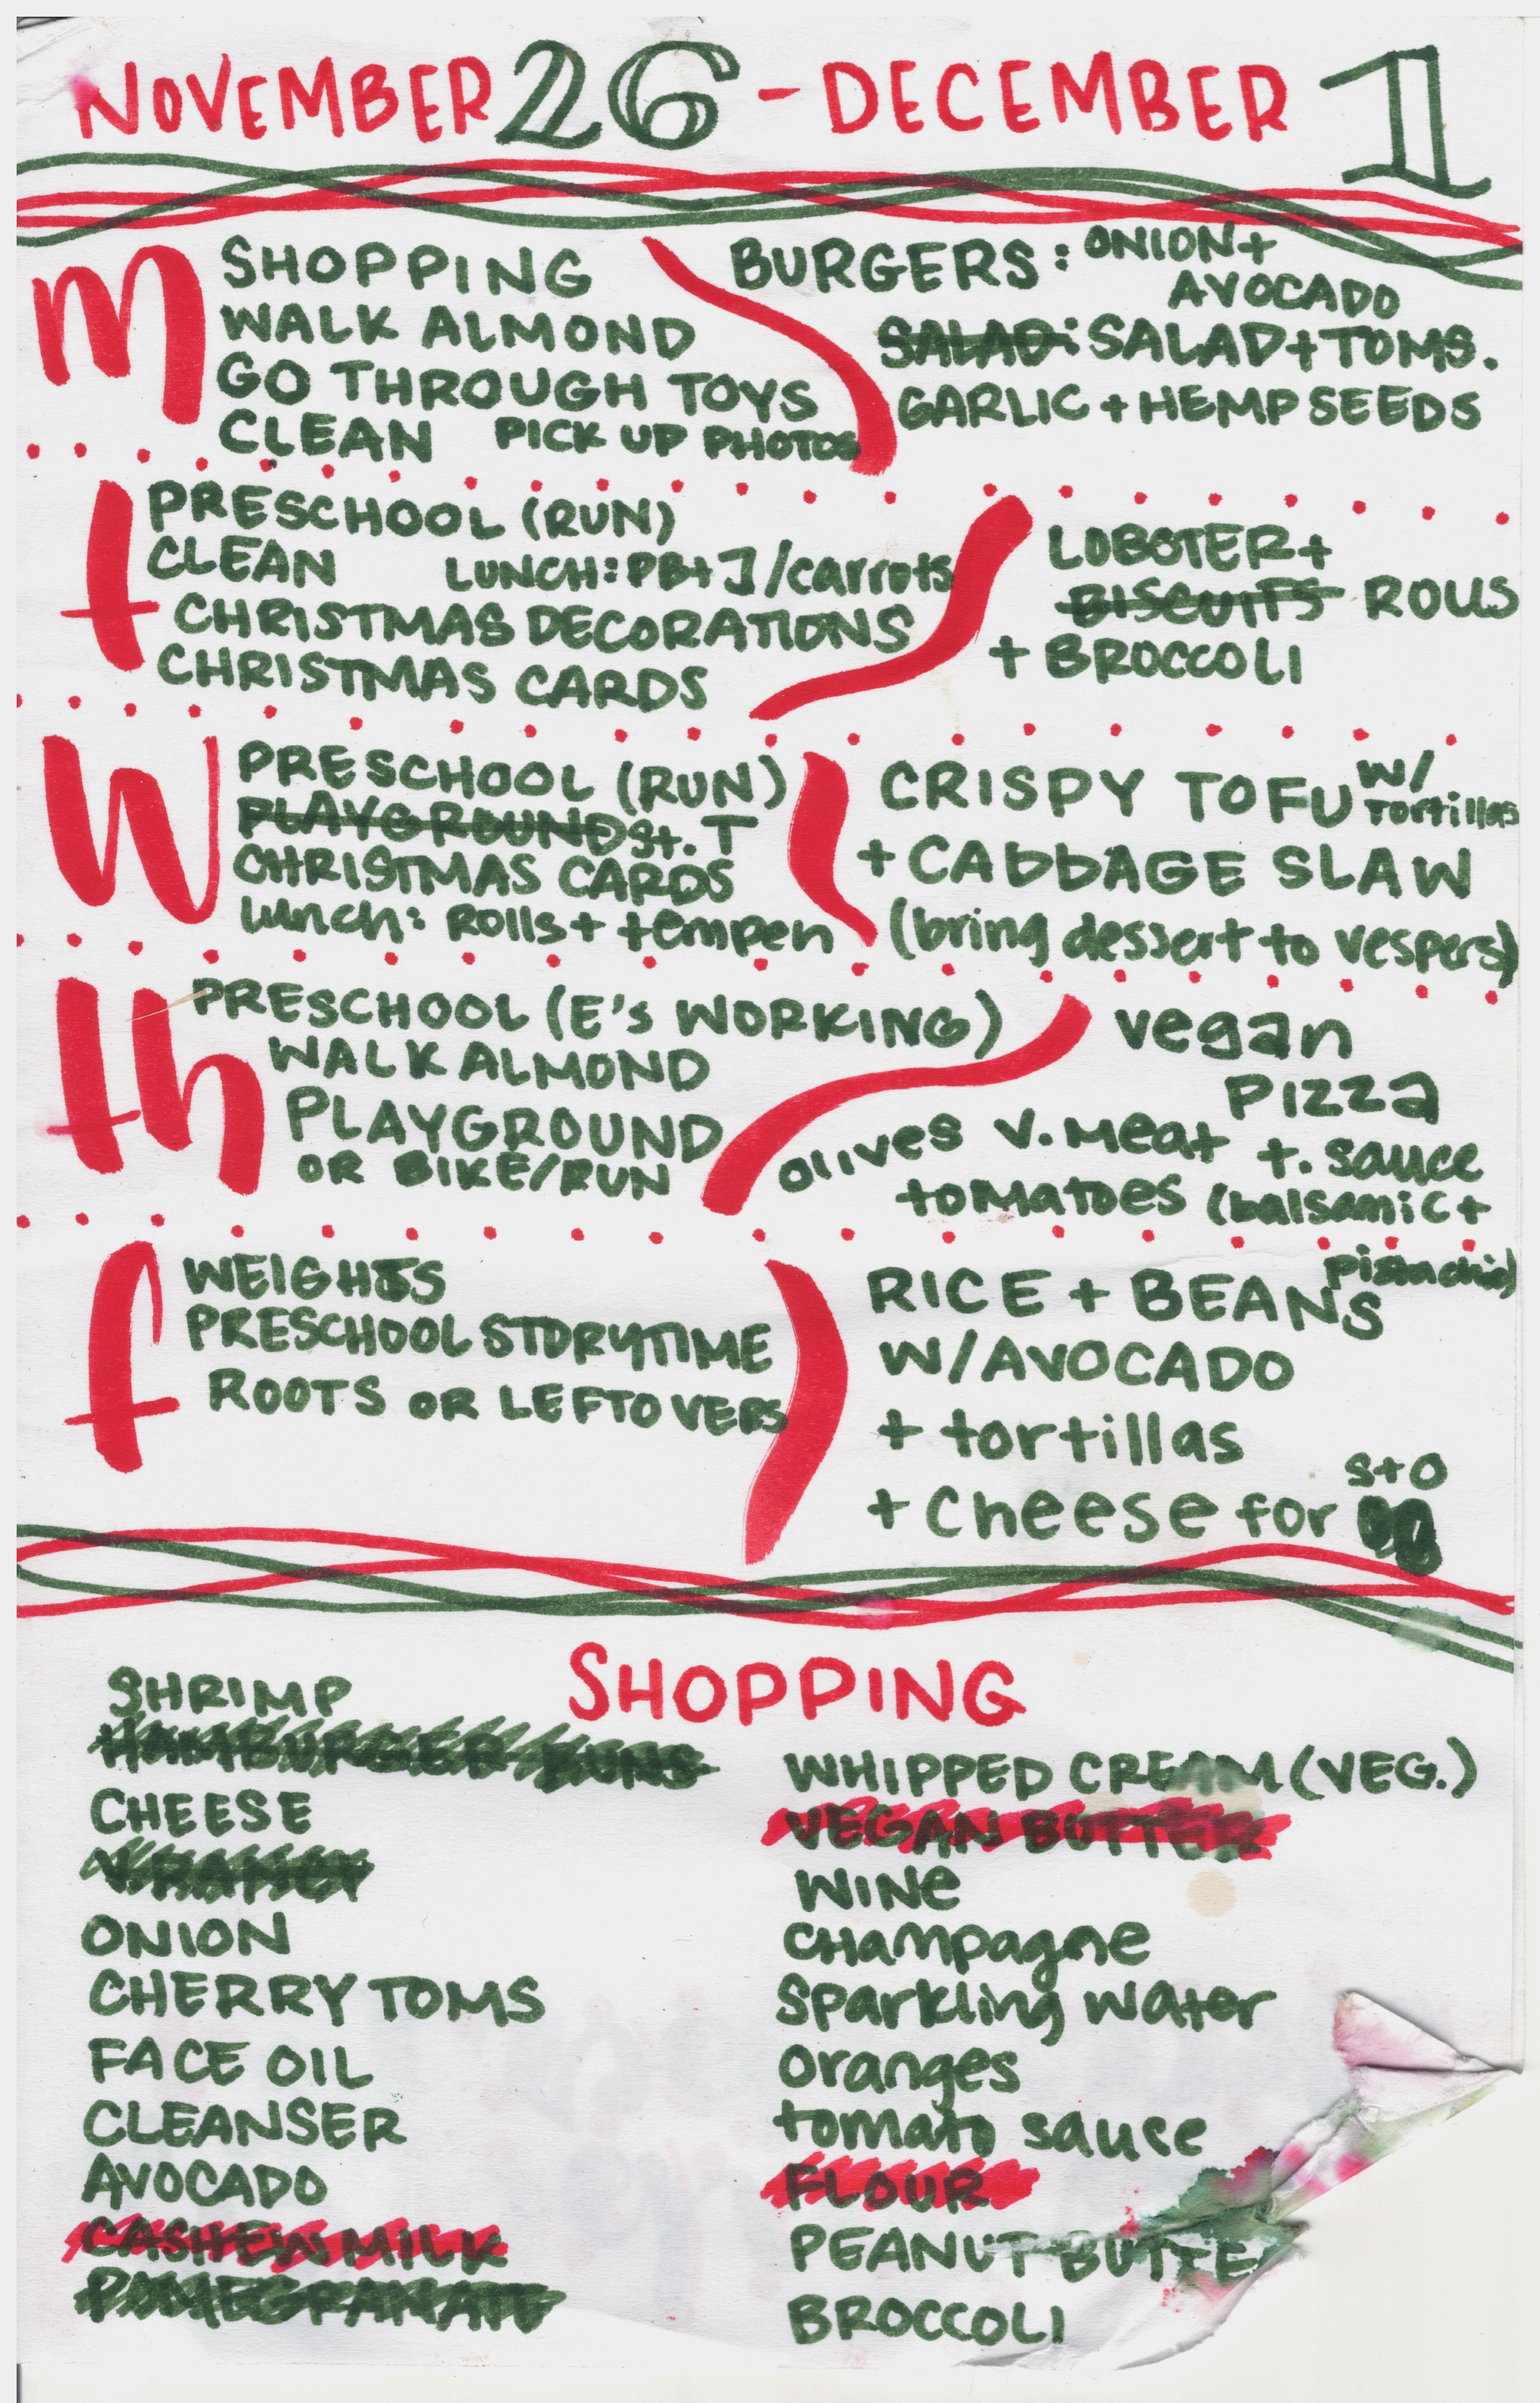 NOVEMBER 26 - DECEMBER 1
M
SHOPPING
WALK ALMOND
GO THROUGH TOYS
CLEAN PICK UP PHOTOS
BURGERS: ONION +
AVOCADO
SALAD: SALAD + TOMS.
GARLIC + HEMP SEEDS
t
PRESCHOOL (RUN)
CLEAN LUNCH: PB+J/carrots
CHRISTMAS DECORATIONS
CHRISTMAS CARDS
LOBSTER +
BISCUITS ROLLS
+ BROCCOLI
W
PRESCHOOL (RUN)
PLAYGROUND St. T
CHRISTMAS CARDS
Lunch: Rolls + tempeh
CRISPY TOFU w/ Tortillas
+ CAbbAGE SLAW
(bring dessert to vespers)
th
PRESCHOOL (E's WORKING)
WALK ALMOND
PLAYGROUND
OR BIKE/RUN
vegan
Pizza
olives v. meat t. sauce
tomatoes (balsamic +
pistachio)
f
WEIGHTS
PRESCHOOL STORYTIME
ROOTS OR LEFTOVERS
RICE + BEANS
W/AVOCADO
+ tortillas
+ Cheese for S+O
SHOPPING
SHRIMP
HAMBURGER BUNS
CHEESE
ONION
CHERRY TOMS
FACE OIL
CLEANSER
AVOCADO
CASHEW MILK
POMEGRANATE
WHIPPED CREAM (VEG.)
VEGAN BUTTER
WINe
CHampagne
Sparkling water
oranges
tomato sauce
FLOUR
PEANUT BUTTE
BROCCOLI